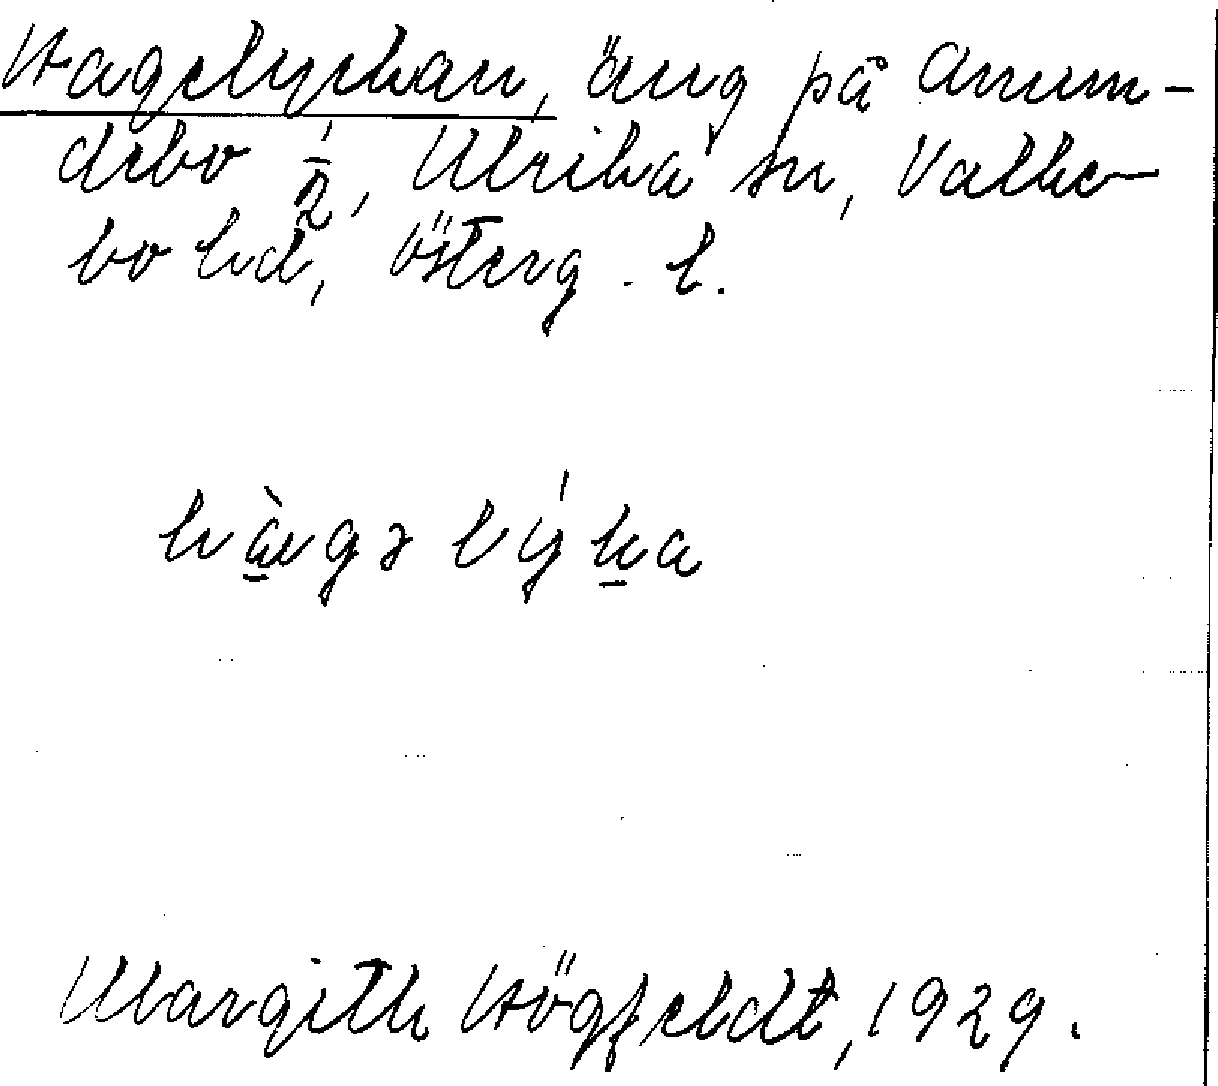 Hagelyckan, äng på Anun-
debo 1/2, Ulrika sn, Valke-
bo hd, Österg. l.
hàgə lýka
Margith Högfeldt, 1929.